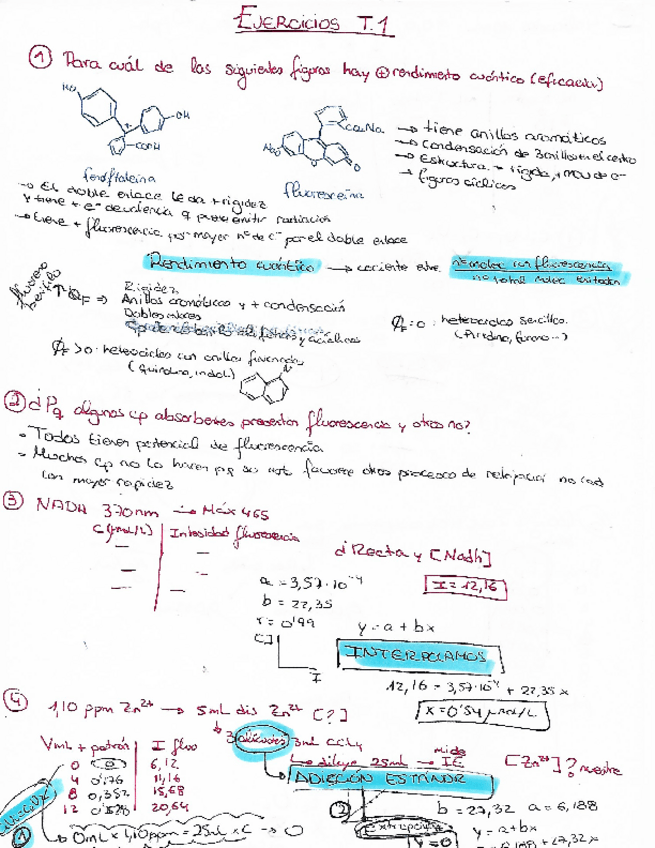 EJERCICIOS T.1
① Para cuál de las siguientes figuras hay ⊕ rendimiento cuántico (eficacia)
HO
OH
COOH
fenoftaleina
CO₂Na
NaO
O
O
fluoresceína
→ tiene anillos aromáticos
→ Condensación de 3 anillos en el centro
→ Estructura + rígida, + mov de e⁻
→ figuras cíclicas
→ El doble enlace le da + rigidez
y tiene + e⁻ de valencia q pueden emitir radiación
→ tiene + fluorescencia por mayor nº de e⁻ por el doble enlace
Rendimiento cuántico → cociente entre nº molec con fluorescencia
nº total molec excitadas
↑ϕF ⇒ Rigidez
Anillos aromáticos y + condensación
Dobles enlaces
ϕF = 0 · heterociclos sencillos
ϕF > 0 · heterociclos con anillos
(quinolina, indol)
② ¿Pq algunos cp absorbentes presentan fluorescencia y otros no?
- Todos tienen potencial de fluorescencia
- Muchos cp no lo hacen pq su estr favorece otros procesos de relajación no rad
con mayor rapidez
③ NADH 370nm → Máx 465
C (μmol/L) | Intesidad fluorescencia
¿Recta y [Nadh]
a = 3,57·10⁻⁴
b = 22,35
r = 0'99
I = 12,16
y = a + bx
[C]
I
INTERPOLAMOS
12,16 = 3,57·10⁻⁴ + 22,35 x
x = 0'54 μmol/L
④ 1,10 ppm Zn²⁺ → 5mL dis Zn²⁺ [?]
3 alícuotas 3mL CCl₄
VmL + patrón | I fluo
0 0 6,12
4 0'176 11,16
8 0,352 15,68
12 0'528 20,64
↳ diluye 25mL → mide IF
[Zn²⁺]? muestra
ADICIÓN ESTÁNDAR
①
②
b = 27,32 a = 6,188
y = a + bx
Extrapolamos
y = 0
0mL x 1,10ppm = 25mL x C → 0